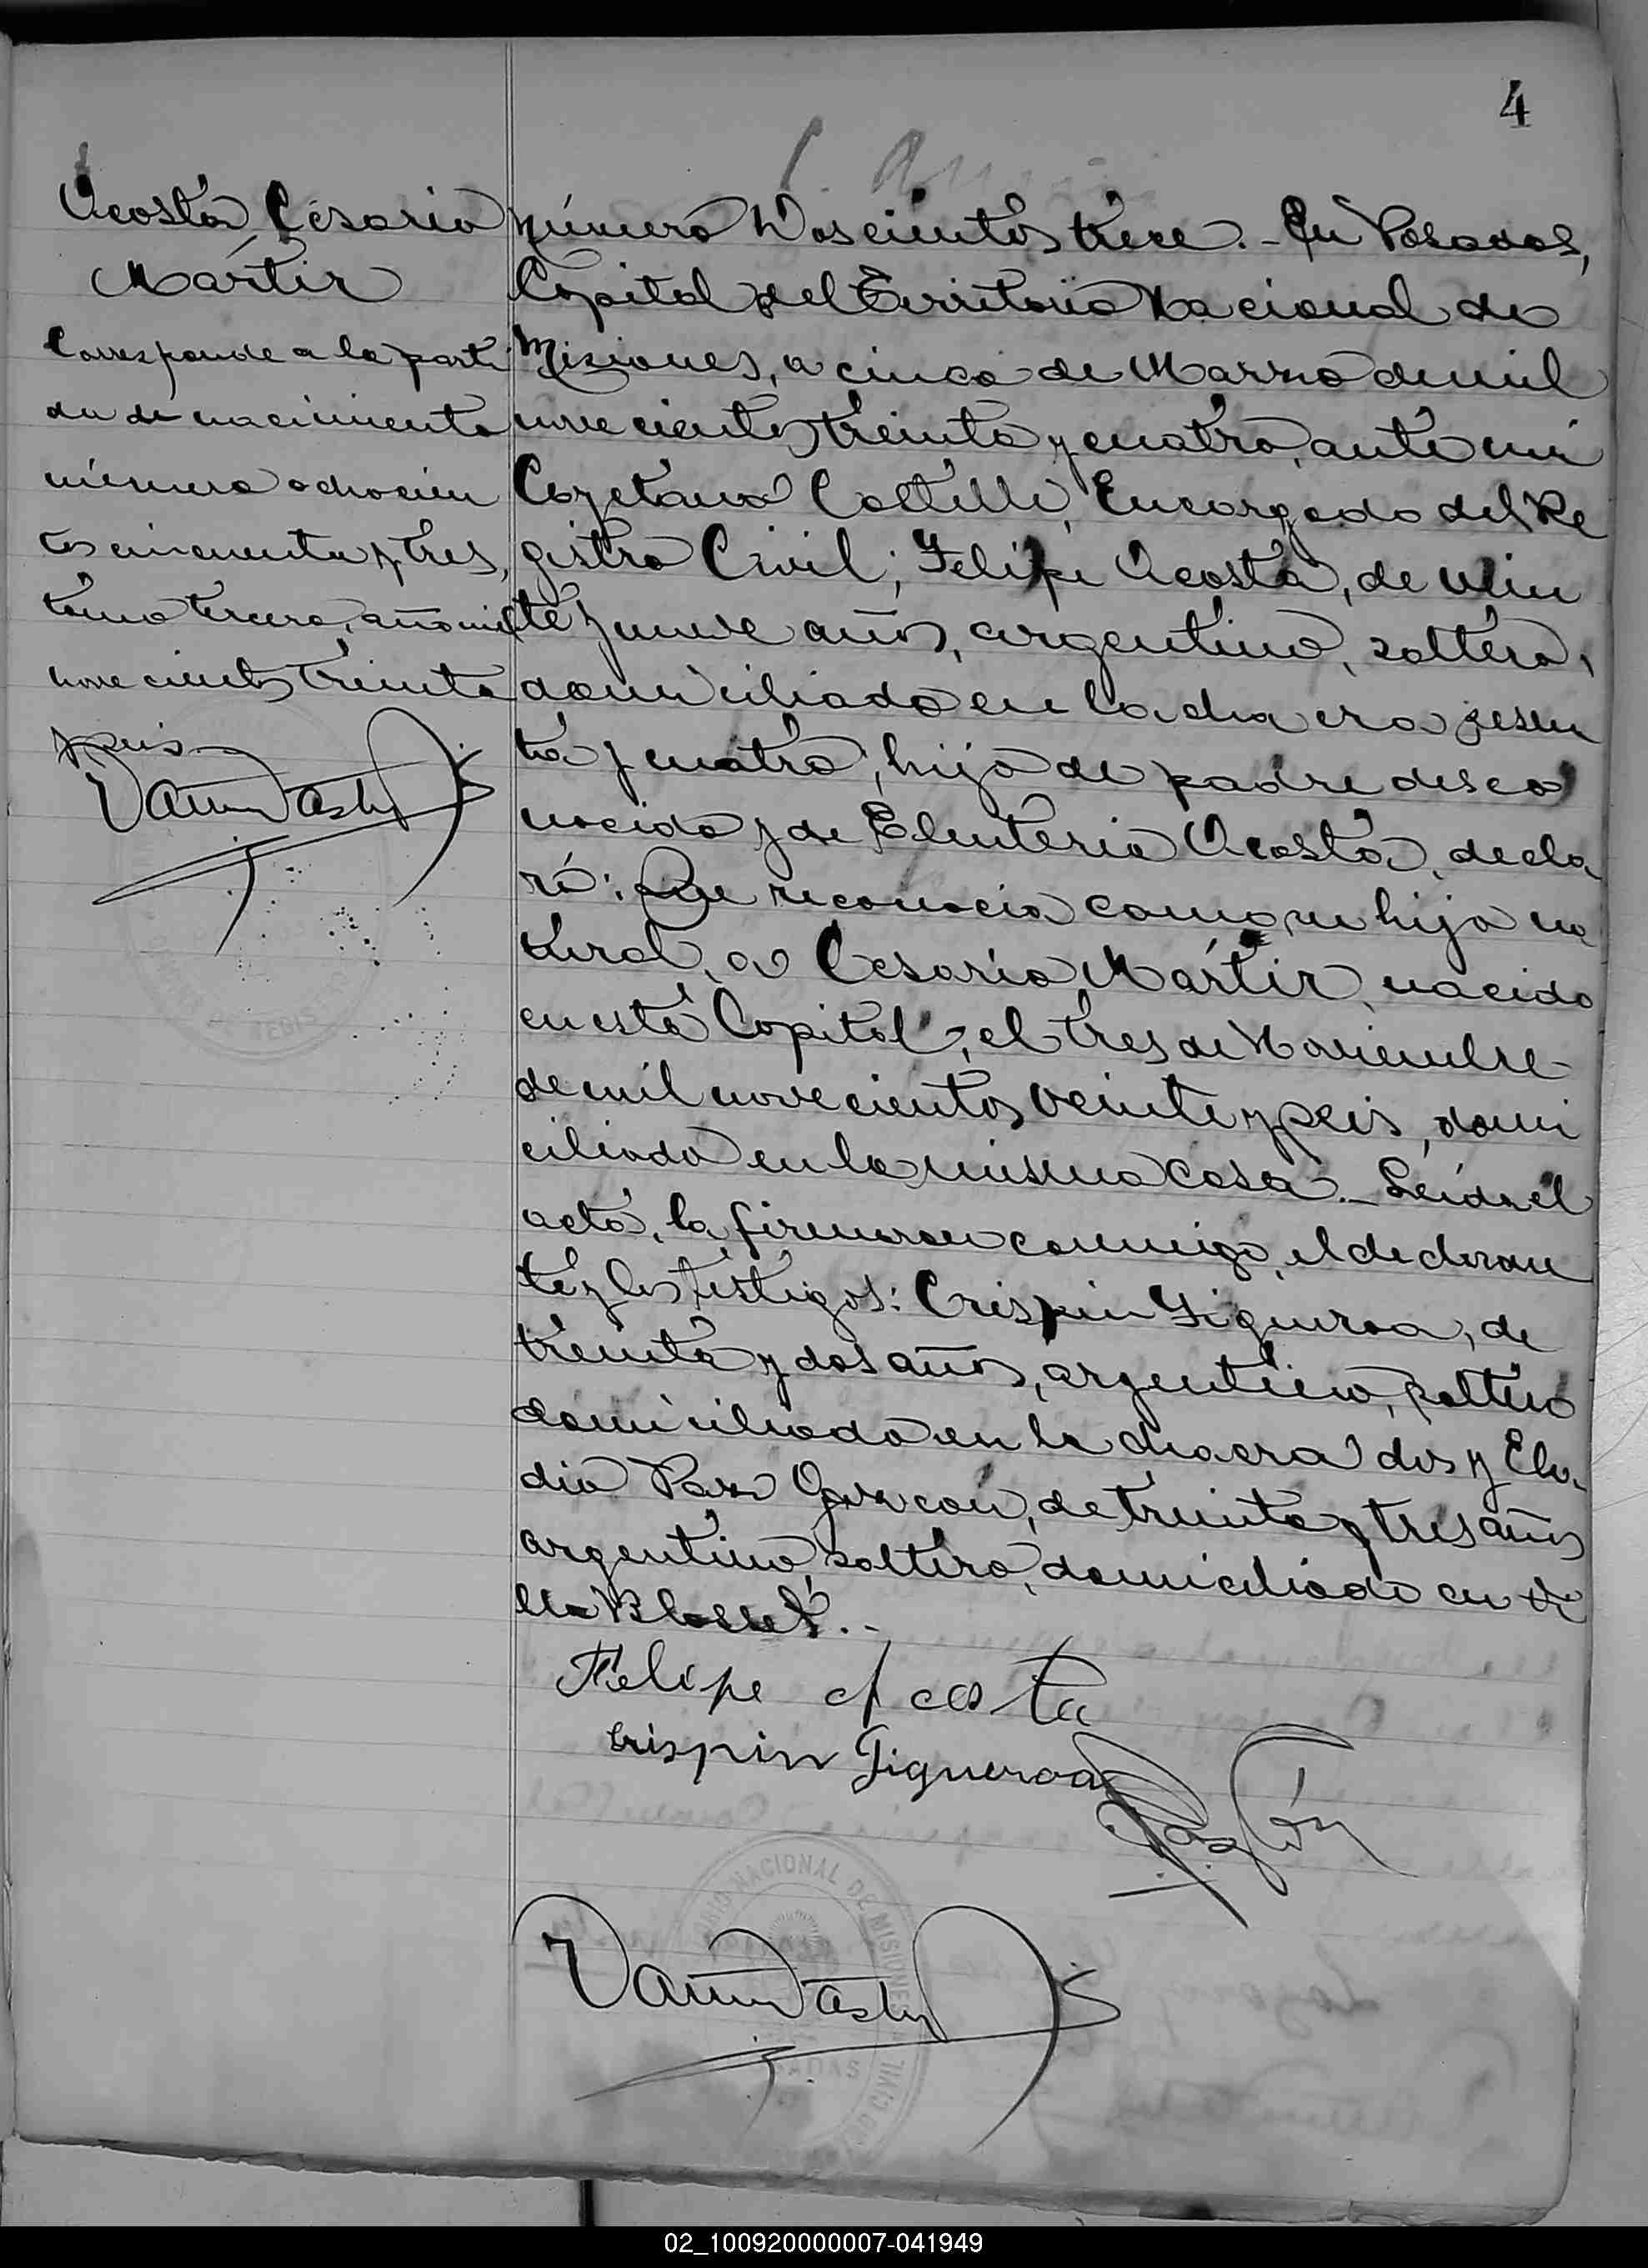 4
Acosta, Cesario
Martir
Corresponde a la parti
da de nacimiento
número ochocien
tos cincuenta y tres,
tomo tercero, año mil
novecientos treinta
y seis
Número Doscientos trece.- En Posadas,
Capital del Territorio Nacional de
Misiones, a cinco de Marzo de mil
novecientos treinta y cuatro, ante mi
Cayetano Castelli, Encargado del Re
gistro Civil; Felipe Acosta, de vein
te y nueve años, argentino, soltero,
domiciliado en la chacra sesen
ta y cuatro, hijo de padre desco
nocido y de Eleuteria Acosta, decla
ró: Que reconocia como su hijo na
tural, a Cesario Martir, nacido
en esta Capital, el tres de Noviembre
de mil novecientos veinte y seis, domi
ciliado en la misma casa.- Leida el
acta, la firmaron conmigo, el declaran
te y los testigos: Crispin Figueroa, de
treinta y dos años, argentino, soltero
domiciliado en la chacra dos y Ela
dio Paz Garzón, de treinta y tres años
argentino, soltero, domiciliado en Vi
lla Blosset.-
Felipe Acosta
Crispin Figueroa
TERRITORIO NACIONAL DE MISIONES
POSADAS
REGISTRO CIVIL
02_100920000007-041949